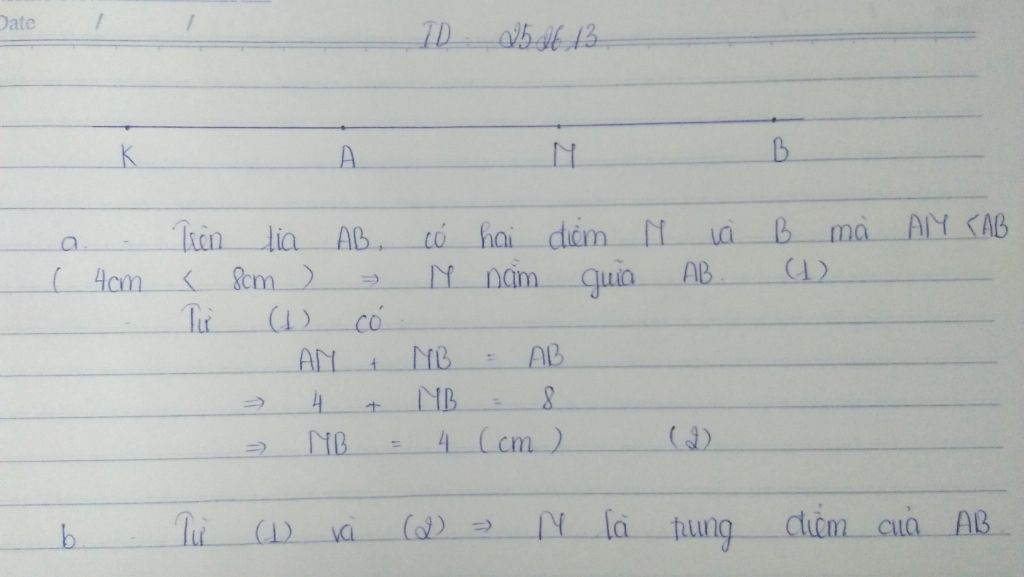 Date / /
ID 252613
K A M B
a. - Trên tia AB, có hai điểm M và B mà AM < AB
( 4cm < 8cm ) ⇒ M nằm giữa AB. (1)
- Từ (1) có
AM + MB = AB
⇒ 4 + MB = 8
⇒ MB = 4 (cm) (2)
b. Từ (1) và (2) ⇒ M là trung điểm của AB